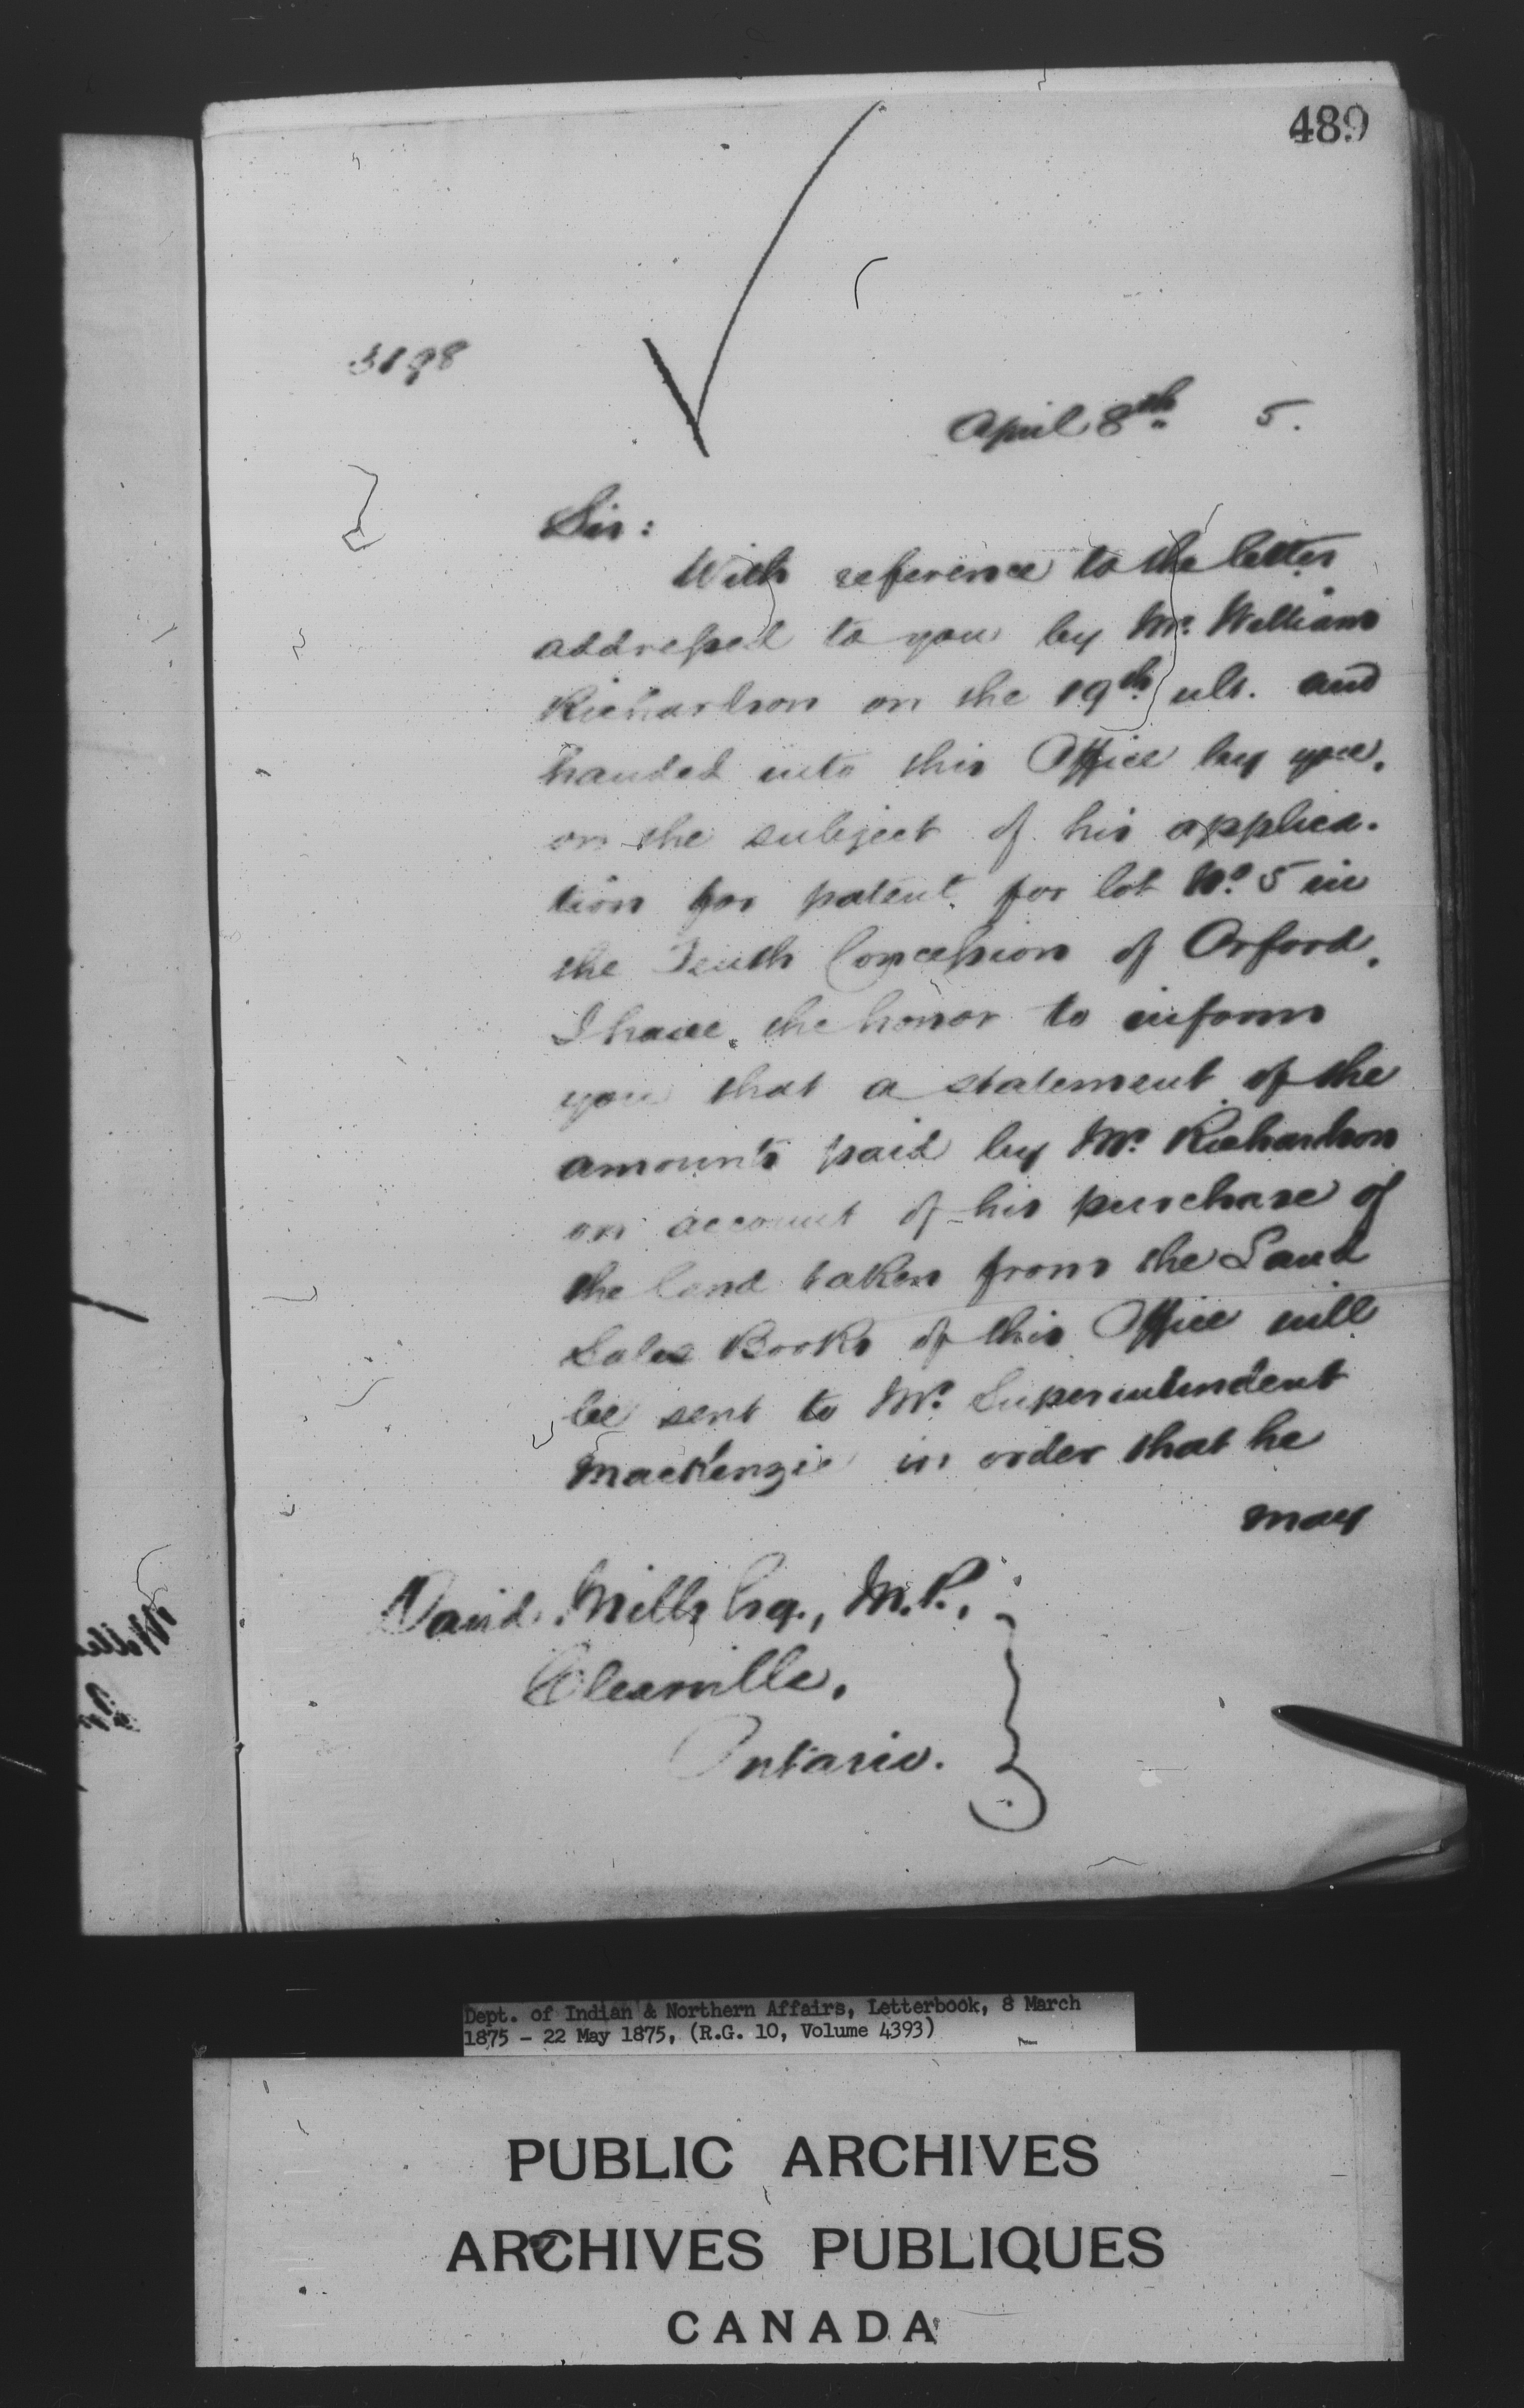 489
3198
April 8th 5.
Sir:
With reference to the letter
addressed to you by Mr. William
Richardson on the 19th ult. and
handed into this Office by you,
on the subject of his applica-
tion for patent for lot No. 5 in
the Tenth Concession of Orford,
I have the honor to inform
you that a statement of the
amounts paid by Mr. Richardson
on account of his purchase of
the land taken from the Land
Sales Books of this Office will
be sent to Mr. Superintendent
MacKenzie in order that he
may
David Mills Esq., M.P.,
Clearville,
Ontario.
Dept. of Indian & Northern Affairs, Letterbook, 8 March
1875 - 22 May 1875, (R.G. 10, Volume 4393)
PUBLIC ARCHIVES
ARCHIVES PUBLIQUES
CANADA